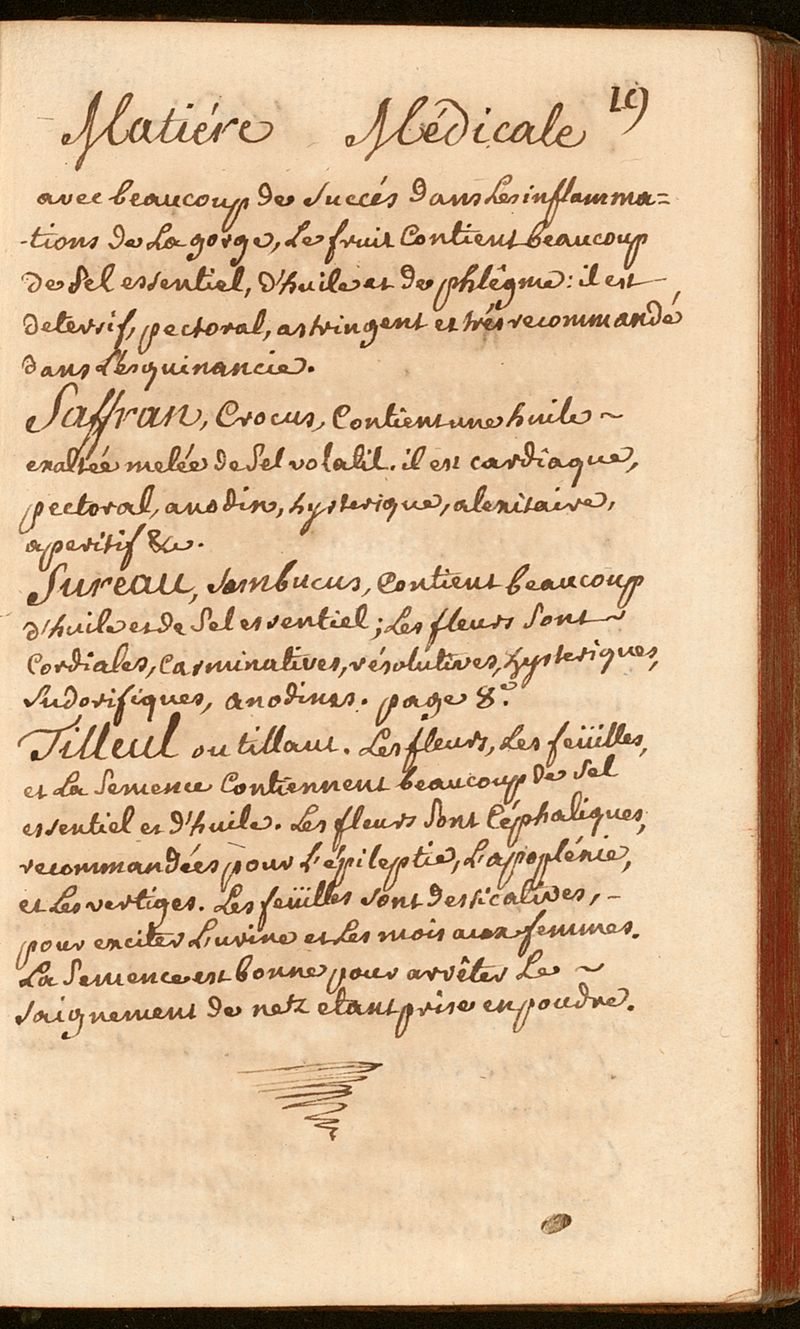 Matiére Médicale 19
avec beaucoup de succés dans Les inflamma=
-tions de La gorge, Le fruit Contient beaucoup
de Sel essentiel, d'huile et de phlêgme: il est
detersif, pectoral, astringent et trés recommandé
dans L'esquinancie.
Saffran, Crocus, Contient une huile ~
exaltée melée de Sel volatil. il est cardiaque,
pectoral, anodin, hysterique, alexitaire,
aperitif &c.
Sureau, Sambucus, Contient beaucoup
d'huile et de Sel essentiel; Les fleurs Sont ~
Cordiales, Carminatives, résolutives, hysteriques,
Sudorifiques, anodines. page 8.e
Tilleul ou tillaut. Les fleurs, Les feüilles,
et La Semence Contiennent beaucoup de Sel
essentiel et d'huile. Les fleurs Sont Céphaliques,
recommandées pour L'épileptie, L'apopléxie,
et Les vertiges. Les feüilles sont dessicatives, -
pour exciter L'urine et Les mois aux femmes.
La Semence est bonne pour arrêter Le ~
saignement de netz etant prise en poudre.